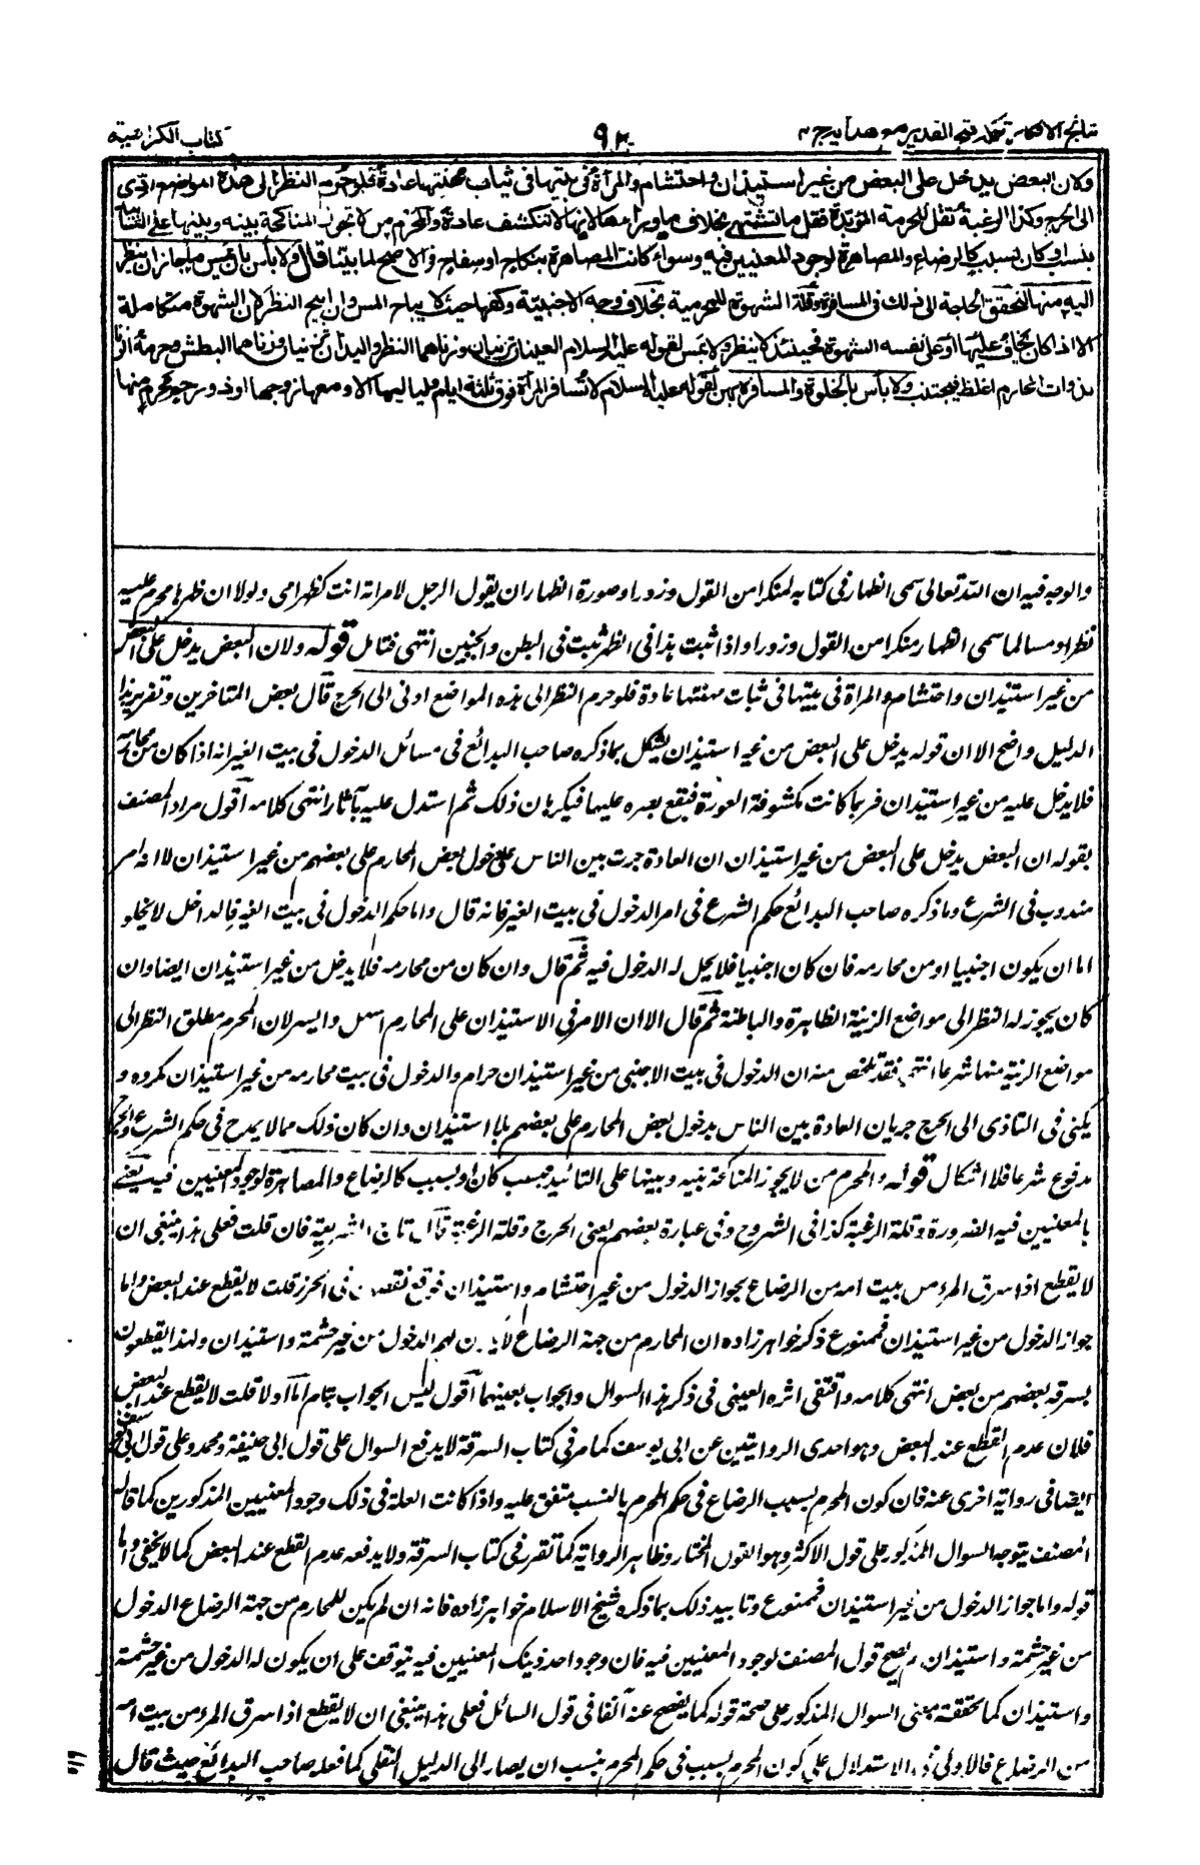 نتائج الافكار تكملة فتح القدير مع هداية ج ٤
٩٣
كتاب الكراهية
ولان البعض يدخل على البعض من غير استيذان واحتشام والمرأة في بيتها في ثياب مهنتها عادة فلو حرم النظر الى هذه المواضع ادى
الى الحرج وكذا الرغبة تقل للحرمة المؤبدة فقل ما تشتهى بخلاف ما وراءها لانها لا تنكشف عادة والمحرم من لا تجوز المناكحة بينه وبينها على التابيد
بنسب او كان بسبب كالرضاع والمصاهرة لوجود المعنيين فيه وسواء كانت المصاهرة بنكاح او سفاح في الاصح لما بينا قال ولا بأس بان يمس ما جاز ان ينظر
اليه منها لتحقق الحاجة الى ذلك في المسافرة وقلة الشهوة للمحرمية بخلاف وجه الاجنبية وكفها حيث لا يباح المس وان ابيح النظر لان الشهوة متكاملة
الا اذا كان يخاف عليها او على نفسه الشهوة فحينئذ لا ينظر ولا يمس لقوله عليه السلام العينان تزنيان وزناهما النظر واليدان تزنيان وزناهما البطش وحرمة الزنا
بذوات المحارم اغلظ فيجتنب ولا بأس بالخلوة والمسافرة بهن لقوله عليه السلام لا تسافر المرأة فوق ثلثة ايام ولياليها الا ومعها زوجها او ذو رحم محرم منها
والوجه فيه ان الله تعالى سمى الظهار في كتابه منكرا من القول وزورا وصورة الظهار ان يقول الرجل لامراته انت كظهر امى ولولا ان ظهرها محرم عليه
نظرا ومسا لما سمى الظهار منكرا من القول وزورا واذا ثبت هذا فى الظهر ثبت فى البطن والجنبين انتهى فتامل قوله ولان البعض يدخل على البعض
من غير استئذان واحتشام والمراة فى بيتها فى ثبات مهنتها عادة فلو حرم النظر الى هذه المواضع ادى الى الحرج قال بعض المتاخرين وتقرير هذا
الدليل واضح الا ان قوله يدخل على البعض من غير استيذان يشكل بما ذكره صاحب البدائع فى مسائل الدخول فى بيت الغير انه اذا كان من محارمه
فلا يدخل عليه من غير استيذان فربما كانت مكشوفة العورة فيقع بصره عليها فيكرهان ذلك ثم استدل عليه بآثار انتهى كلامه اقول مراد المصنف
بقوله ان البعض يدخل على البعض من غير استيذان ان العادة جرت بين الناس على دخول بعض المحارم على بعضهم من غير استيذان لا انه امر
مندوب فى الشرع وما ذكره صاحب البدائع حكم الشرع فى امر الدخول فى بيت الغير فانه قال واما حكم الدخول فى بيت الغير فالداخل لا يخلو
اما ان يكون اجنبيا او من محارمه فان كان اجنبيا فلا يحل له الدخول فيه ثم قال وان كان من محارمه فلا يدخل من غير استيذان ايضا وان
كان يجوز له النظر الى مواضع الزينة الظاهرة والباطنة ثم قال الا ان الامر فى الاستيذان على المحارم اسهل وايسر لان المحرم مطلق النظر الى
مواضع الزينة منها شرعا انتهى فقد تلخص منه ان الدخول فى بيت الاجنبى من غير استيذان حرام والدخول فى بيت محارمه من غير استيذان مكروه و
يكفى فى التاذى الى الحرج جريان العادة بين الناس بدخول بعض المحارم على بعضهم بلا استيذان وان كان ذلك مما لا يمدح فى حكم الشرع والحرج
مدفوع شرعا فلا اشكال قوله والمحرم من لا يجوز المناكحة بينه وبينها على التابيد بنسب كان او بسبب كالرضاع والمصاهرة لوجود المعنيين فيه يعنى
بالمعنيين فيه الضرورة وقلة الرغبة كذا فى الشروح وفى عبارة بعضهم يعنى الحرج وقلة الرغبة قال تاج الشريعة فان قلت فعلى هذا ينبغى ان
لا يقطع اذا سرق المرء من بيت امه من الرضاع بجواز الدخول من غير احتشام واستيذان فوقع نقصان فى الحرز قلت لا يقطع عند البعض واما
جواز الدخول من غير استيذان فممنوع ذكر خواهر زاده ان المحارم من جهة الرضاع لا يكون لهم الدخول من غير حشمة واستيذان ولهذا يقطعون
بسرقة بعضهم من بعض انتهى كلامه واقتفى اثره العينى فى ذكر هذا السوال والجواب بعينهما اقول ليس الجواب بتام اما اولا قلت لا يقطع عند البعض
فلان عدم القطع عند البعض وهو احدى الروايتين عن ابى يوسف كما مر فى كتاب السرقة لا يدفع السوال على قول ابى حنيفة ومحمد وعلى قول ابى يوسف
ايضا فى رواية اخرى عنه فان كون المحرم بسبب الرضاع فى حكم المحرم بالنسب متفق عليه واذا كانت العلة فى ذلك وجود المعنيين المذكورين كما قاله
المصنف يتوجه السوال المذكور على قول الاكثر وهو القول المختار وظاهر الرواية كما تقرر فى كتاب السرقة ولا يدفعه عدم القطع عند البعض كما لا يخفى واما
قوله واما جواز الدخول من غير استيذان فممنوع وتاييد ذلك بما ذكره شيخ الاسلام خواهر زاده فانه ان لم يكن للمحارم من جهة الرضاع الدخول
من غير حشمة واستيذان لم يصح قول المصنف لوجود المعنيين فيه فان وجود احد ذينك المعنيين فيه يتوقف على ان يكون له الدخول من غير حشمة
واستيذان كما تحققته مبنى السوال المذكور على صحة قوله كما يفصح عنه آنفا فى قول السائل فعلى هذا ينبغى ان لا يقطع اذا سرق المرء من بيت امه
من الرضاع فالاولى فى الاستدلال على كون المحرم بسبب فى حكم المحرم بنسب ان يصار الى الدليل النقلى كما فعله صاحب البدائع حيث قال